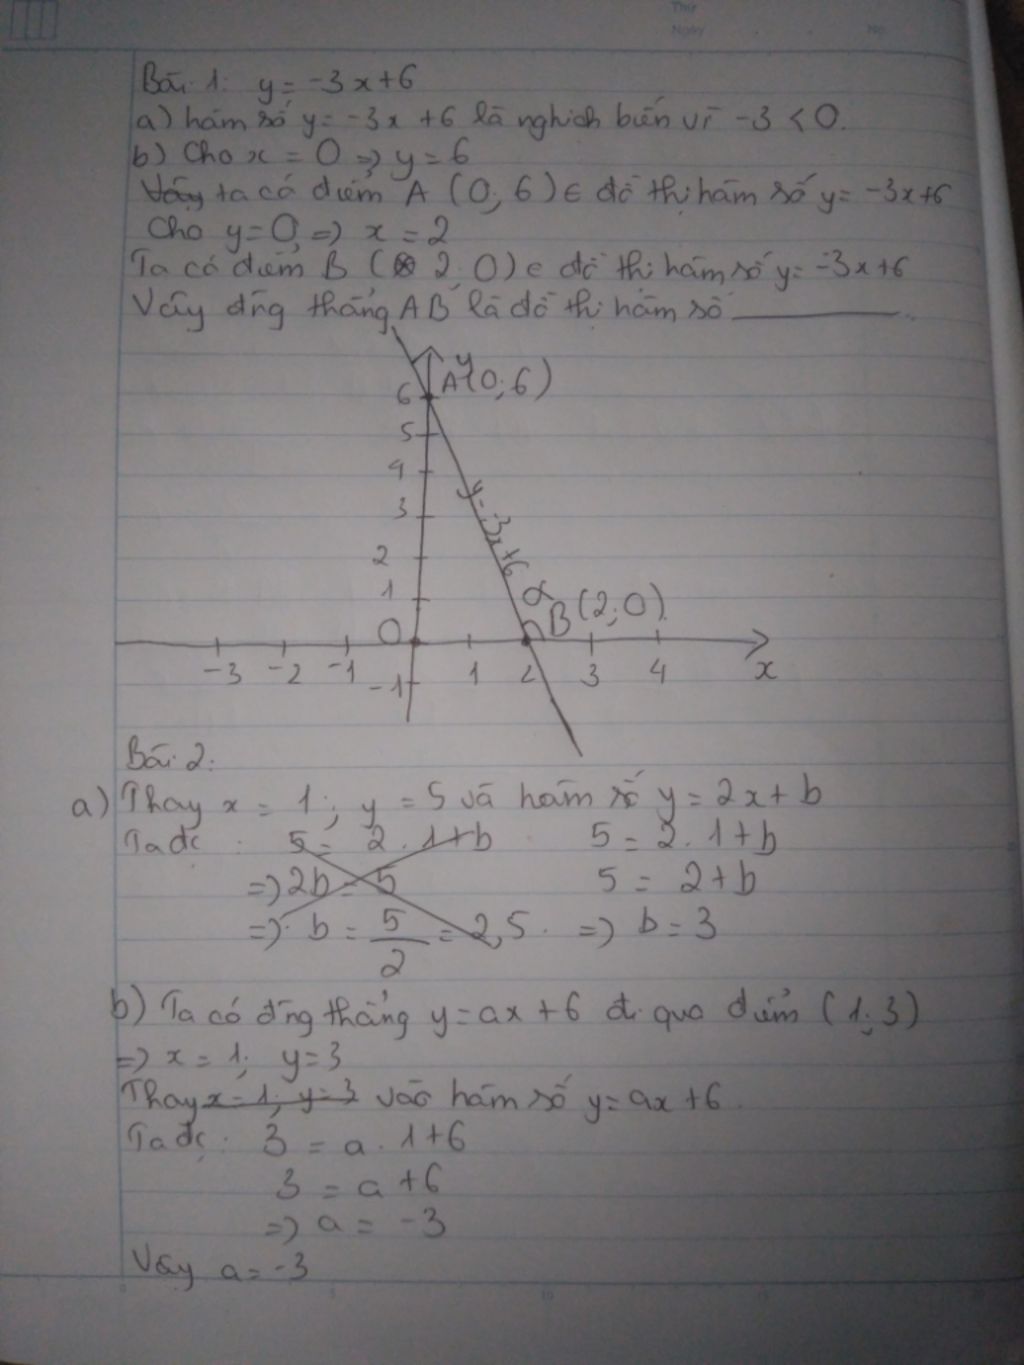 Thứ
Ngày
No.
Bài 1: y = -3x+6
a) hàm số y = -3x +6 là nghịch biến vì -3 < 0.
b) Cho x = 0 => y = 6
Vậy ta có điểm A (0; 6) ∈ đồ thị hàm số y = -3x+6
Cho y = 0 => x = 2
Ta có điểm B ( 2; 0) ∈ đồ thị hàm số y = -3x+6
Vậy đng thẳng AB là đồ thị hàm số
y
6 A (0; 6)
5
4
3
y = -3x+6
2
1 α
B (2; 0)
0
-3 -2 -1 1 2 3 4 x
-1
Bài 2:
a) Thay x = 1; y = 5 và hàm số y = 2x + b
Ta đc : 5 = 2 . 1 + b 5 = 2 . 1 + b
=> 2b = 5 5 = 2 + b
=> b = 5/2 = 2,5. => b = 3
b) Ta có đng thẳng y = ax + 6 đi qua điểm (1; 3)
=> x = 1; y = 3
Thay x = 1; y = 3 vào hàm số y = ax + 6
Ta đc: 3 = a . 1 + 6
3 = a + 6
=> a = -3
Vậy a = -3
10